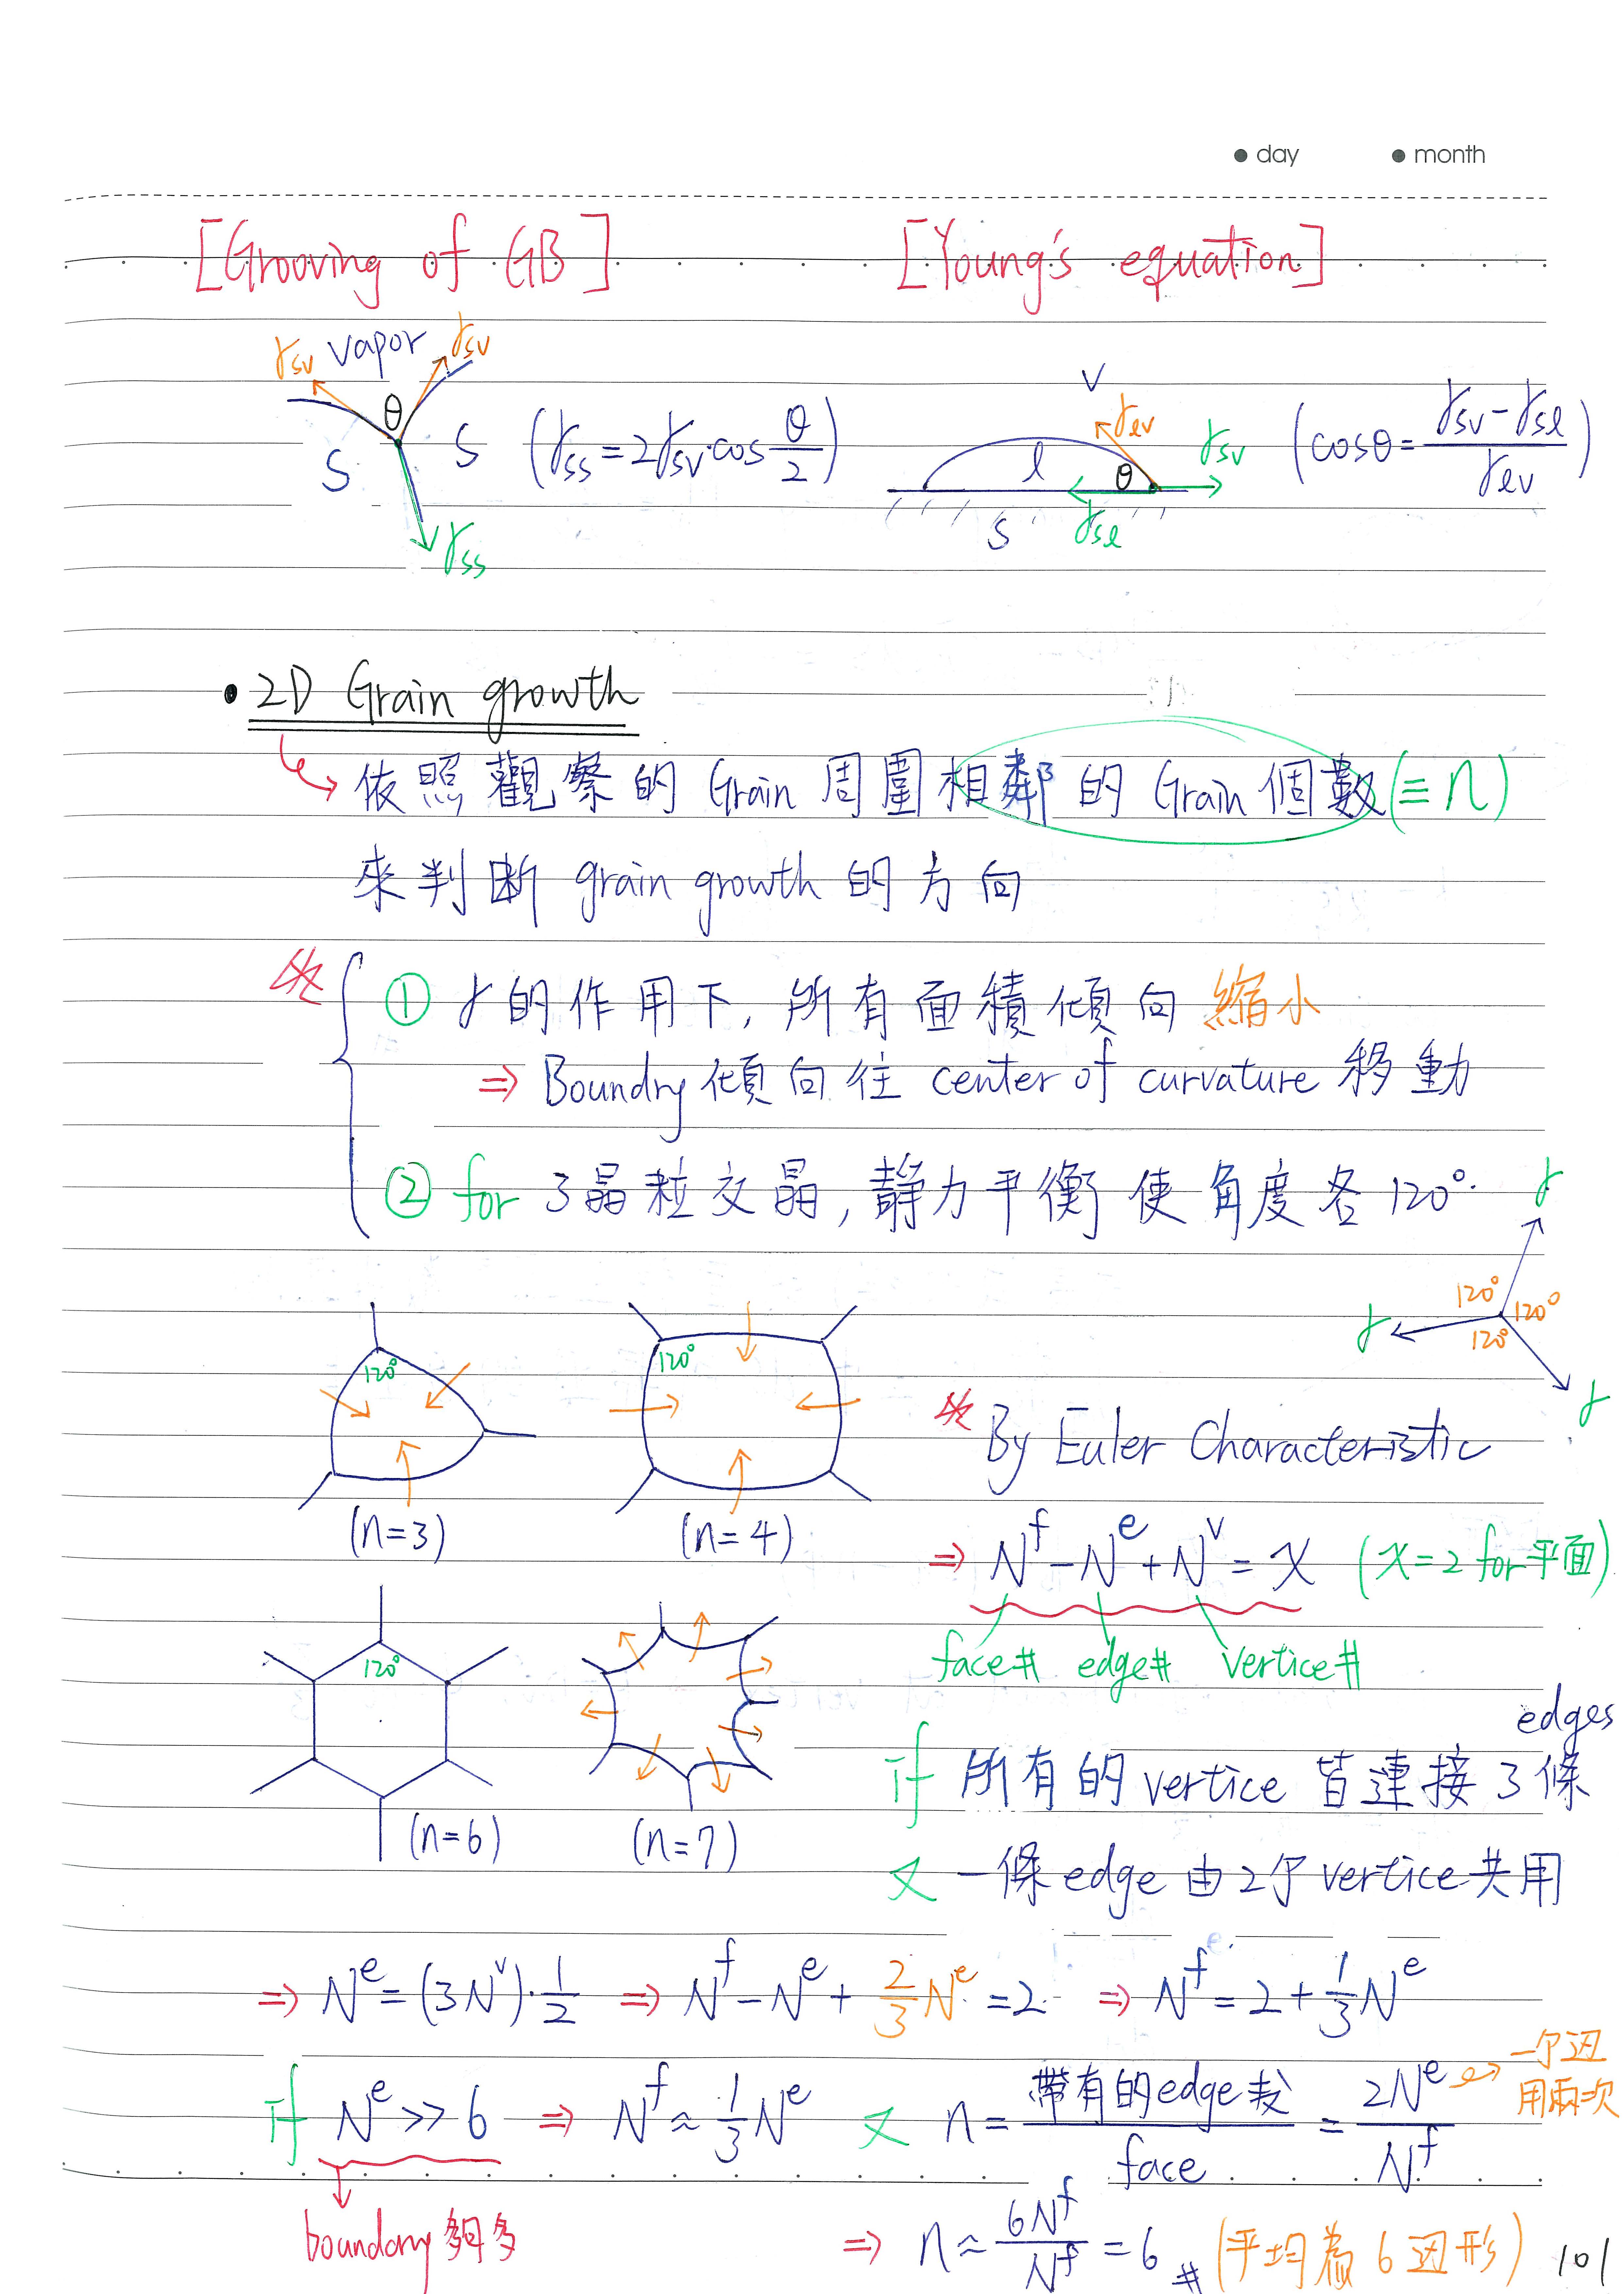 day month
[Grooving of GB] [Young's equation]
γsv vapor γsv
θ
S S (γss = 2γsv·cos θ/2)
γss
v
γlv γsv
l θ
s γsl
(cosθ = (γsv - γsl)/γlv)
• 2D Grain growth
依照觀察的 Grain 周圍相鄰的 Grain 個數 (≡ n)
來判斷 grain growth 的方向
① γ的作用下, 所有面積傾向縮小
⇒ Boundry 傾向往 center of curvature 移動
② for 3晶粒交晶, 靜力平衡使角度各120°.
γ
120° 120°
γ 120°
γ
120° 120°
(n=3) (n=4)
By Euler Characteristic
⇒ N^f - N^e + N^v = χ (χ=2 for 平面)
face# edge# vertice#
120°
(n=6) (n=7)
edges
if 所有的 vertice 皆連接 3條
又 一條 edge 由 2个 vertice 共用
⇒ N^e = (3N^v)·1/2 ⇒ N^f - N^e + 2/3 N^e = 2 ⇒ N^f = 2 + 1/3 N^e
if N^e >> 6 ⇒ N^f ≈ 1/3 N^e 又 n = 帶有的edge数/face = 2N^e/N^f
一个边
用兩次
boundary 夠多
⇒ n ≈ 6N^f/N^f = 6 # (平均為 6 边形)
101